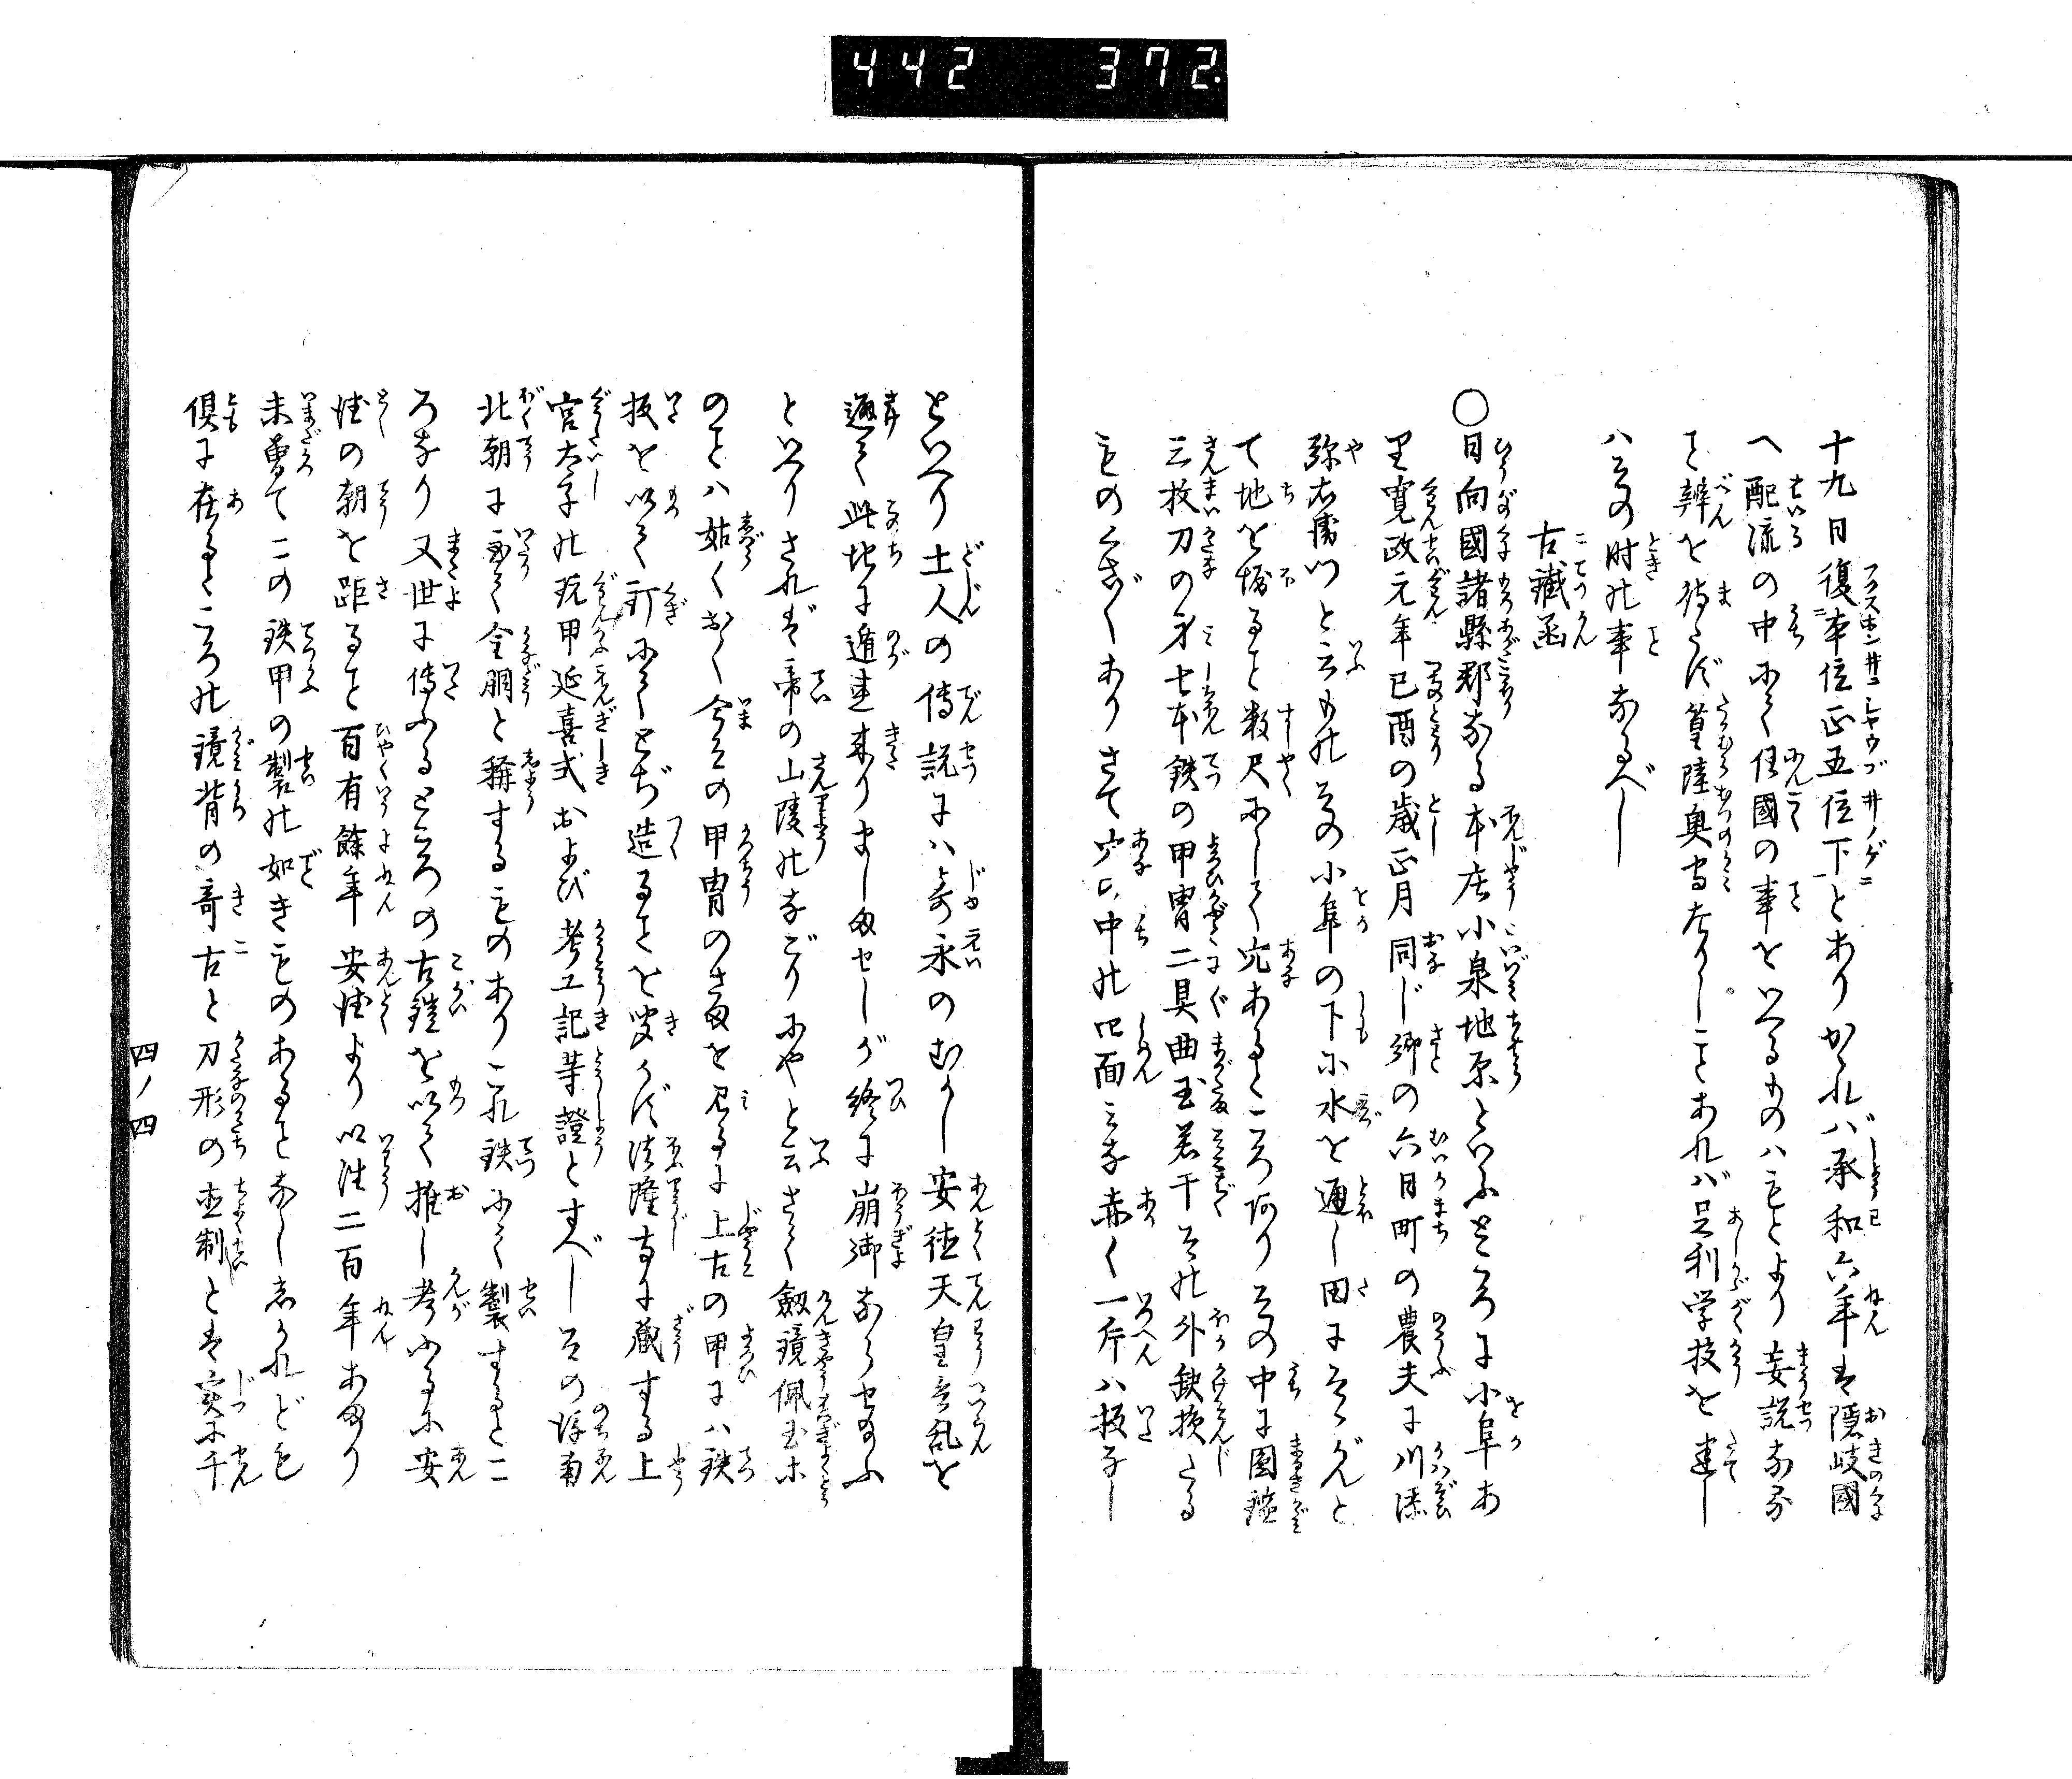 442 372.
十九日復本位正五位下とありかゝれバ承和六年は隠岐國
へ配流の中にて任國の事をいへるものハもとより妄説なる
こと辨を待たず篁陸奥守たりしことあれバ足利学校を建し
ハその時の事なるべし
古鐵函
〇日向國諸縣郡なる本庄小泉地原といふところに小阜あ
里寛政元年己酉の歳正月同じ郷の六日町の農夫に川添
弥右衛門と云ものその小阜の下に水を通し田にそゝがんと
て地を堀ること数尺にして穴あるところ阿りその中に圓鑑
三枚刀の身七本鉄の甲冑二具曲玉若干その外鉄損たる
ものくさ〴〵ありさて穴の中の四面みな赤く一斧ハ板なし
といへり土人の傳説にハ寿永のむかし安徳天皇兵乱を
避て此地に遁連来りましませしが終に崩御ならせ給ふ
といへりされば帝の山陵のなごりにやと云さて劔鏡佩玉等
のことハ姑くおく今その甲冑のさまを見るに上古の甲にハ鉄
板を以て釘にてとぢ造ることを聞かず法隆寺に蔵する上
宮太子の玩甲延喜式および考工記等證とすべしその後南
北朝に至て金胴と稱するものあり一孔鉄にて製するとこ
ろなり又世に傳ふるところの古鎧を以て推し考ふるに安
徳の朝を距ること百有餘年安徳より以往二百年あまり
未曽てこの鉄甲の製の如きものあることなししかれども
倶に在るところの鏡背の奇古と刀形の直制とは実に千
四ノ四